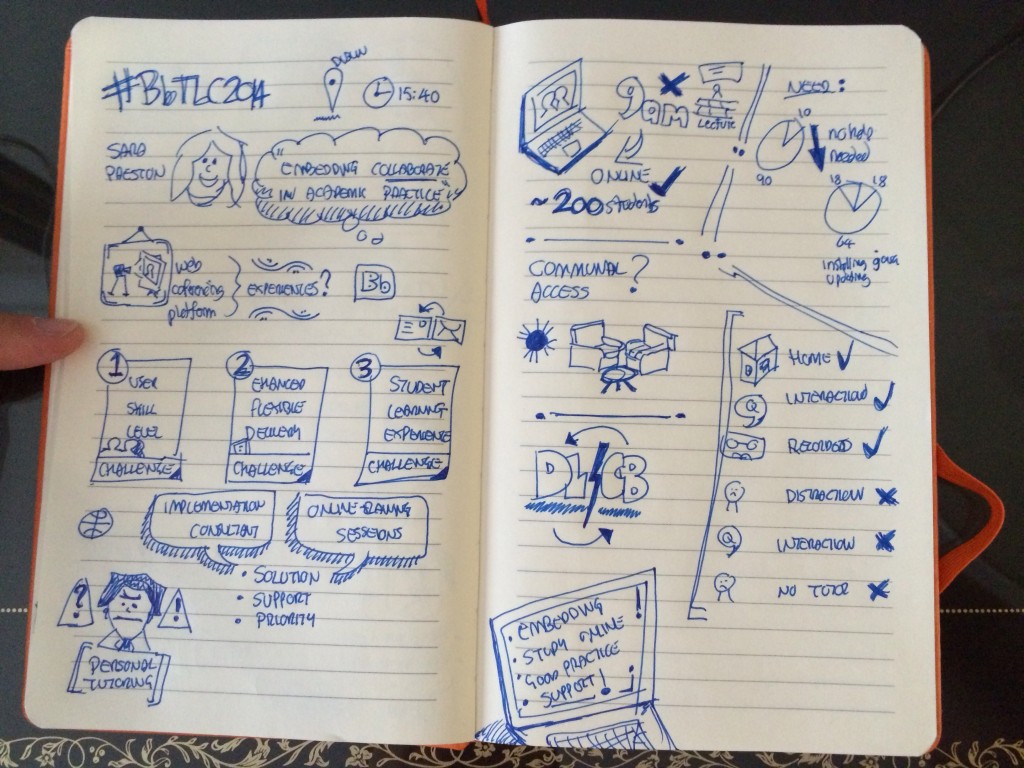 #BbTLC2014
DUBLIN
15:40
SARA
PRESTON
"EMBEDDING COLLABORATE
IN ACADEMIC PRACTICE"
web
conferencing
platform
EXPERIENCES?
Bb
1
USER
SKILL
LEVEL
CHALLENGE
2
ENHANCED
FLEXIBLE
DELIVERY
CHALLENGE
3
STUDENT
LEARNING
EXPERIENCE
CHALLENGE
IMPLEMENTATION
CONSULTANT
ONLINE TRAINING
SESSIONS
• SOLUTION
• SUPPORT
• PRIORITY
?
!
[PERSONAL
TUTORING]
9am
LECTURE
ONLINE
~ 200 students
COMMUNAL
ACCESS
?
DL
CB
• EMBEDDING
STUDY ONLINE
• GOOD PRACTICE
• SUPPORT!
NEED:
10
90
no help
needed
18
18
64
Installing java
updating
HOME
INTERACTION
RECORDED
DISTRACTION
INTERACTION
NO TUTOR